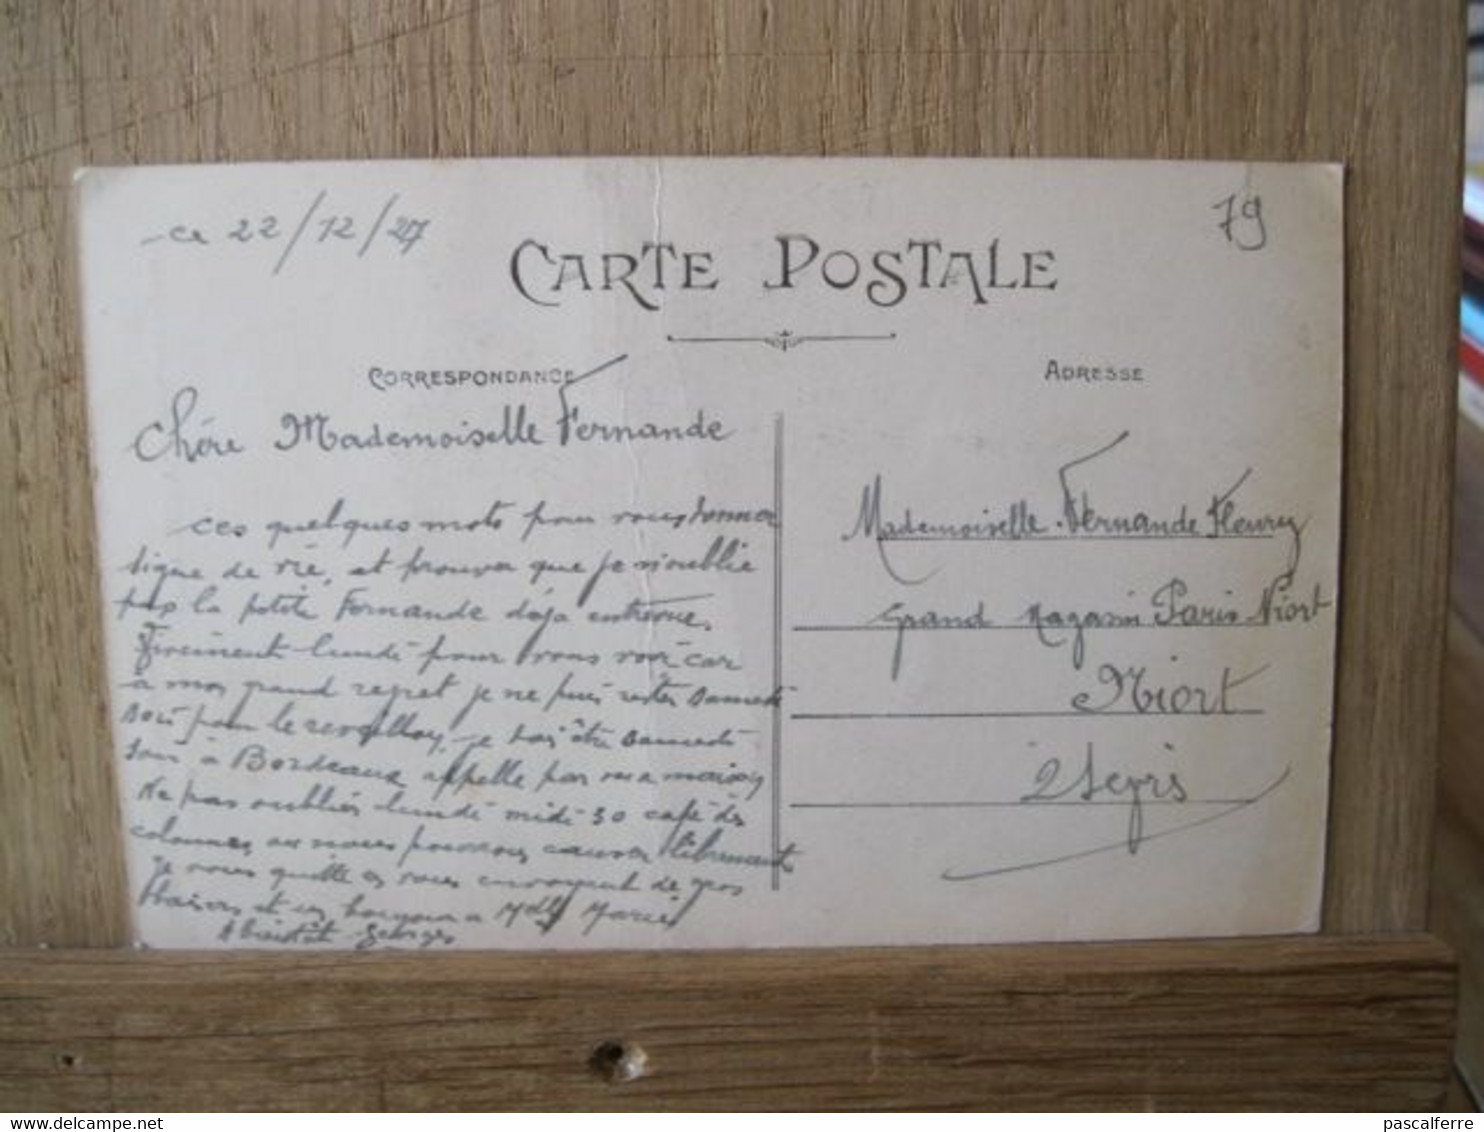 ce 22/12/27
79
CARTE POSTALE
CORRESPONDANCE
ADRESSE
Chére Mademoiselle Fernande
ces quelques mots pour vous donner
signe de vie, et prouver que je n'oublie
pas la petite Fernande déja entrevue.
lundi pour vous voir car
à mon grand regret je ne puis rester Samedi
Soir pour le reveillon, je dois être Samedi
soir à Bordeaux appelle par ma maison
Ne pas oublier lundi midi 30 café des
colonnes, ou nous pourrons causer librement
Je vous quitte en vous envoyant de gros
baisers et un bonjour a Mdlle Marie
A bientôt Georges
Mademoiselle Fernande Fleury
Grand Magasin Paris-Niort
Niort
2 Sevres
pascalferre